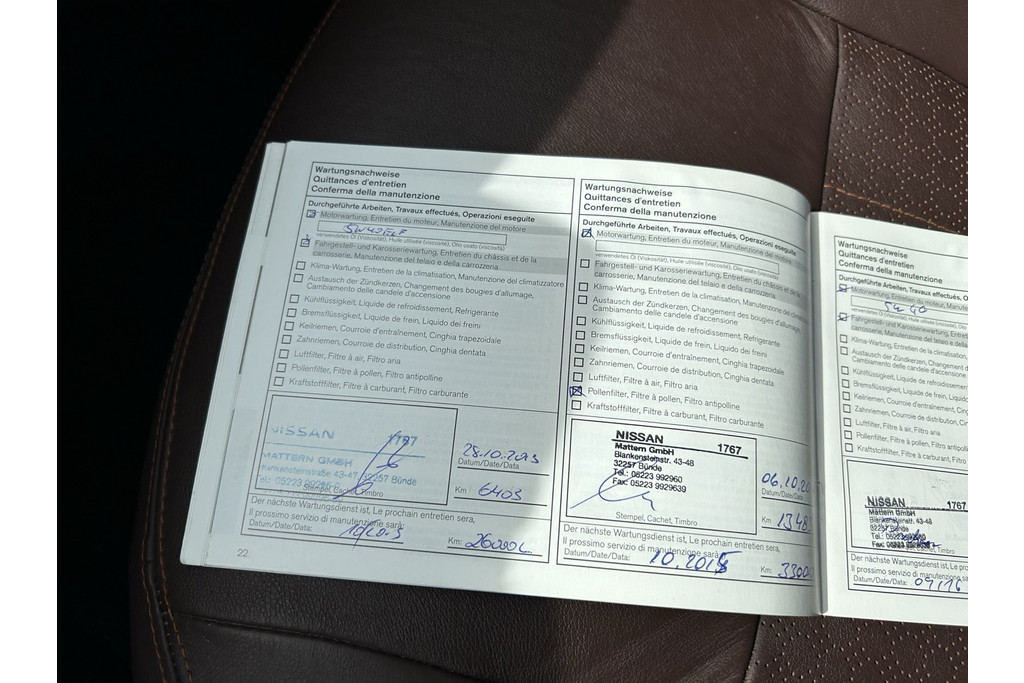 Wartungsnachweise
Quittances d'entretien
Conferma della manutenzione
Durchgeführte Arbeiten, Travaux effectués, Operazioni eseguite
Motorwartung, Entretien du moteur, Manutenzione del motore
verwendetes Öl (Viskosität), Huile utilisée (viscosité), Olio usato (viscosità)
Fahrgestell- und Karosseriewartung, Entretien du châssis et de la
carrosserie, Manutenzione del telaio e della carrozzeria
Klima-Wartung, Entretien de la climatisation, Manutenzione del climatizzatore
Austausch der Zündkerzen, Changement des bougies d'allumage,
Cambiamento delle candele d'accensione
Kühlflüssigkeit, Liquide de refroidissement, Refrigerante
Bremsflüssigkeit, Liquide de frein, Liquido dei freini
Keilriemen, Courroie d'entraînement, Cinghia trapezoidale
Zahnriemen, Courroie de distribution, Cinghia dentata
Luftfilter, Filtre à air, Filtro aria
Pollenfilter, Filtre à pollen, Filtro antipolline
Kraftstofffilter, Filtre à carburant, Filtro carburante
NISSAN 1767
MATTERN GMBH
32257 Bünde
Stempel, Cachet, Timbro
28.10.2013
Datum/Date/Data
Km 6403
Der nächste Wartungsdienst ist, Le prochain entretien sera,
Il prossimo servizio di manutenzione sarà:
Datum/Date/Data:
Km: 26000
22
Wartungsnachweise
Quittances d'entretien
Conferma della manutenzione
Durchgeführte Arbeiten, Travaux effectués, Operazioni eseguite
Motorwartung, Entretien du moteur, Manutenzione del motore
verwendetes Öl (Viskosität), Huile utilisée (viscosité), Olio usato (viscosità)
Fahrgestell- und Karosseriewartung, Entretien du châssis et de la
carrosserie, Manutenzione del telaio e della carrozzeria
Klima-Wartung, Entretien de la climatisation, Manutenzione del climatizzatore
Austausch der Zündkerzen, Changement des bougies d'allumage,
Cambiamento delle candele d'accensione
Kühlflüssigkeit, Liquide de refroidissement, Refrigerante
Bremsflüssigkeit, Liquide de frein, Liquido dei freini
Keilriemen, Courroie d'entraînement, Cinghia trapezoidale
Zahnriemen, Courroie de distribution, Cinghia dentata
Luftfilter, Filtre à air, Filtro aria
Pollenfilter, Filtre à pollen, Filtro antipolline
Kraftstofffilter, Filtre à carburant, Filtro carburante
NISSAN 1767
Mattern GmbH
Blankensteinstr. 43-48
32257 Bünde
Tel.: 05223 992960
Fax: 05223 9929639
Stempel, Cachet, Timbro
06.10.20
Datum/Date/Data
Km 1348
Der nächste Wartungsdienst ist, Le prochain entretien sera,
Il prossimo servizio di manutenzione sarà:
Datum/Date/Data: 10.2015
Km: 3300
Wartungsnachweise
Quittances d'entretien
Conferma della manutenzione
Durchgeführte Arbeiten, Travaux effectués, O
Motorwartung, Entretien du moteur, Manute
5W40
verwendetes Öl (Viskosität), Huile utilisée (viscosité)
Fahrgestell- und Karosseriewartung,
carrosserie, Manutenzione del telaio e della
Klima-Wartung, Entretien de la climatisation
Austausch der Zündkerzen, Changement d
Cambiamento delle candele d'accensione
Kühlflüssigkeit, Liquide de refroidissement
Bremsflüssigkeit, Liquide de frein, Liquido
Keilriemen, Courroie d'entraînement, Cing
Zahnriemen, Courroie de distribution, Cin
Luftfilter, Filtre à air, Filtro aria
Pollenfilter, Filtre à pollen, Filtro antipolin
Kraftstofffilter, Filtre à carburant, Filtro c
NISSAN 1767
Mattern GmbH
Blankensteinstr. 43-48
32257 Bünde
Timbro
Der nächste Wartungsdienst ist, Le pro
Il prossimo servizio di manutenzione sa
Datum/Date/Data: